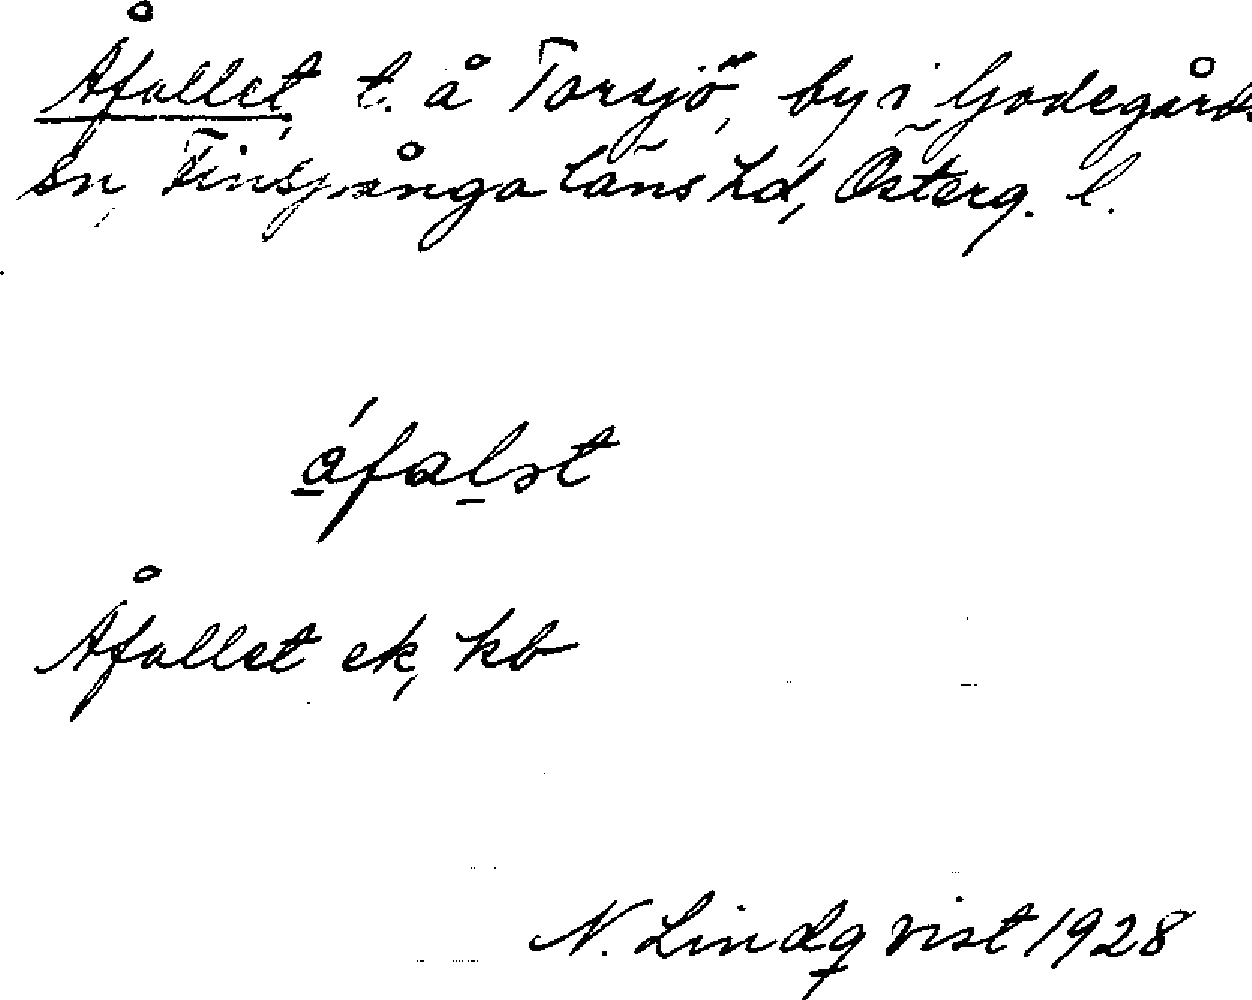 Åfallet, t. å Torsjö, by i Godegårds
sn, Finspånga läns hd, Österg. l.
áfalət
Åfallet ek, kb
N. Lindqvist 1928